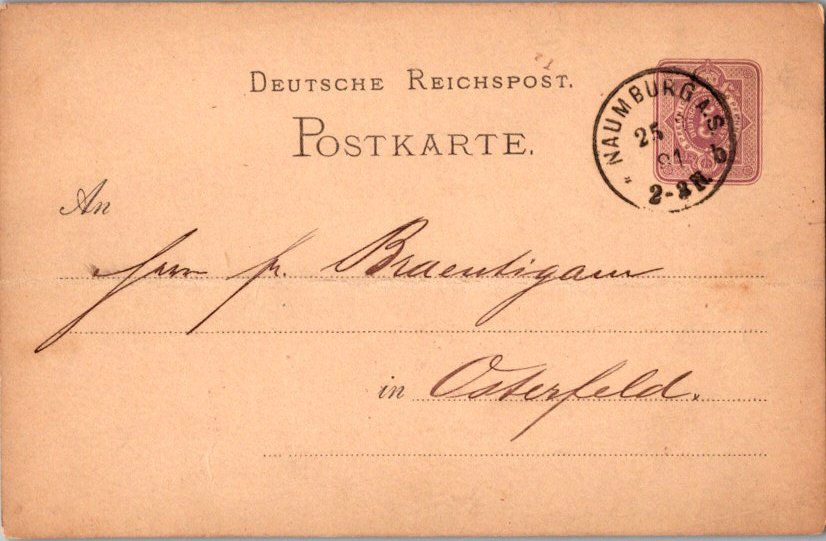 DEUTSCHE REICHSPOST.
POSTKARTE.
NAUMBURG A.S.
25
2-3 N.
b
An
Herrn Fr. Braeutigam
in Osterfeld.